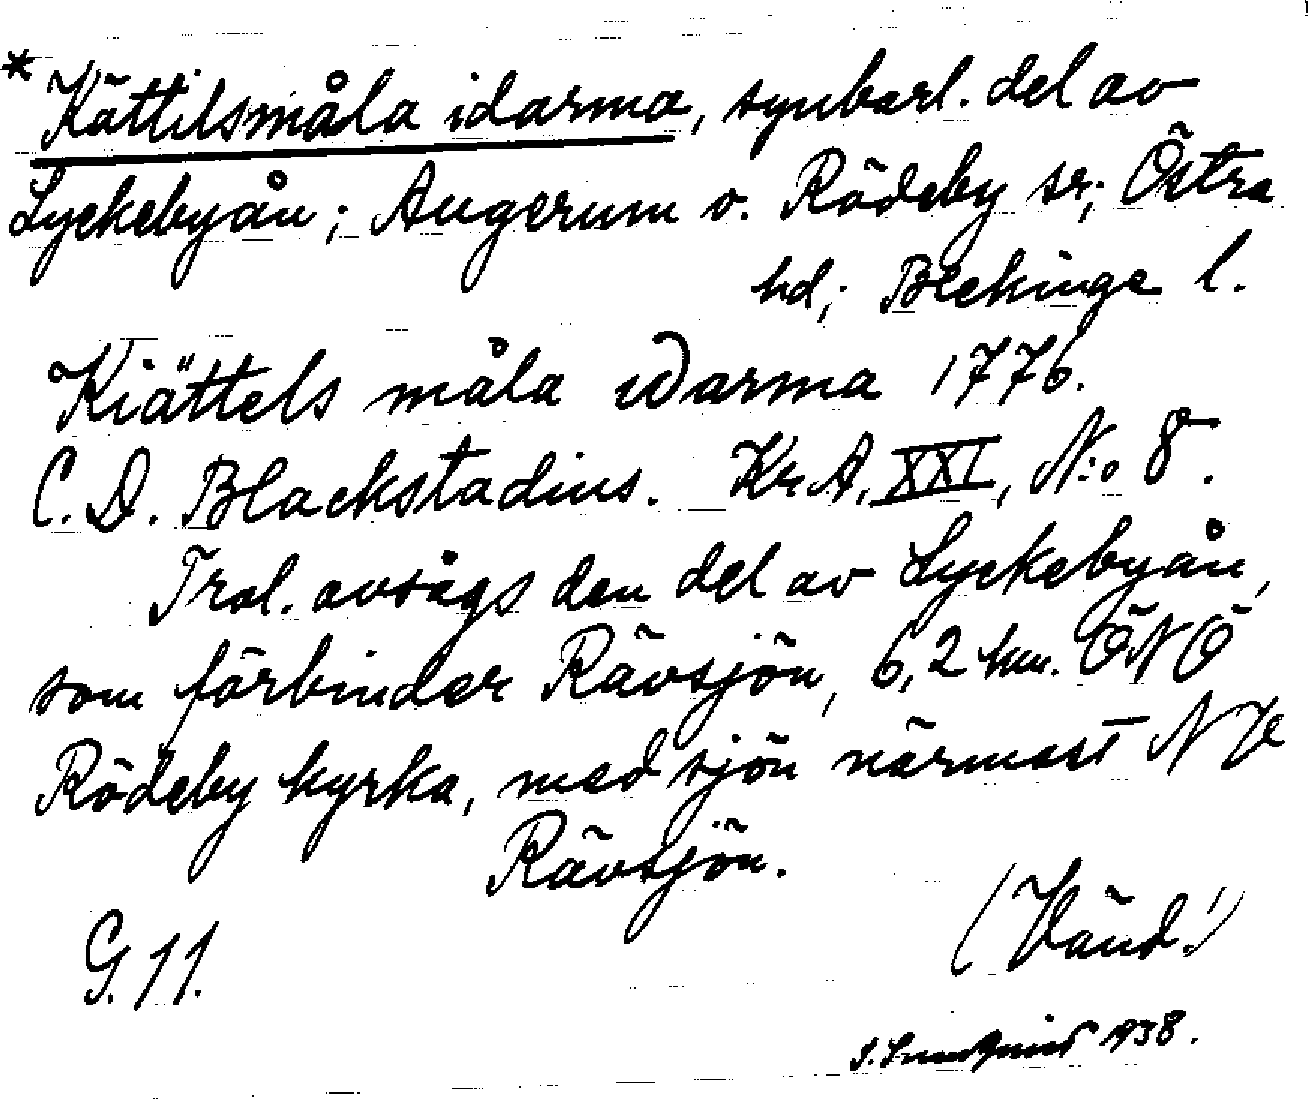 * Kättilsmåla idarma, synbarl. del av
Lyckebyån; Augerum o. Rödeby sr; Östra
hd; Blekinge l.
Kiättels måla idarma 1776.
C. D. Blackstadius. Kr. A. XXI, N:o 8.
Trol. avsågs den del av Lyckebyån,
som förbinder Rävsjön, 6,2 km. ÖNÖ
Rödeby kyrka, med sjön närmast NV
Rävsjön.
(Vänd!)
G. 11.
S. Lundquist 1938.